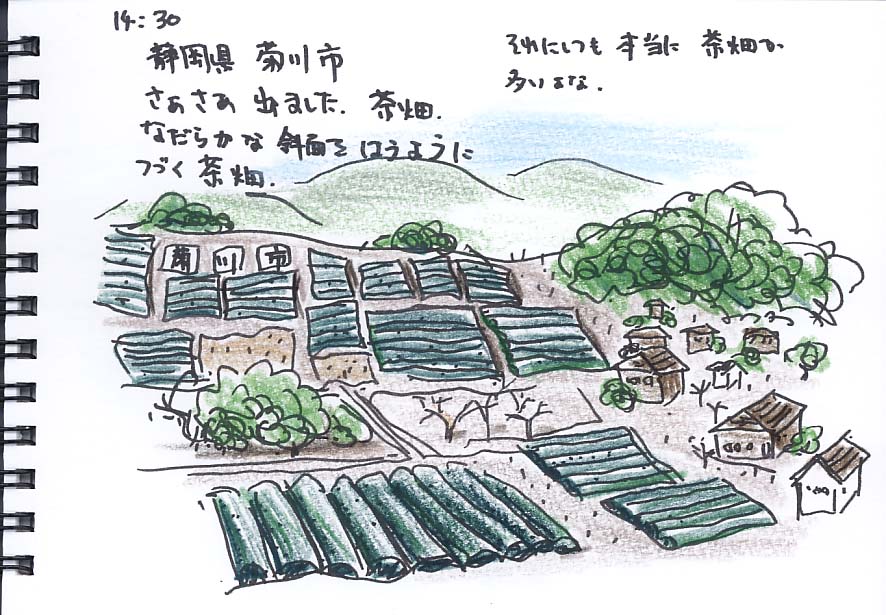 14:30
静岡県 菊川市
さぁさぁ 出ました. 茶畑.
なだらかな 斜面を はうように
つづく 茶畑.
それにしても 本当に 茶畑が
多いよな.
菊 川 市